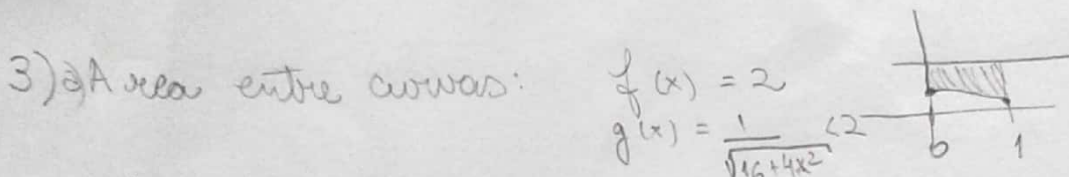 3) a) Area entre curvas: f(x) = 2
g(x) = 1/√(16+4x²) < 2
0 1